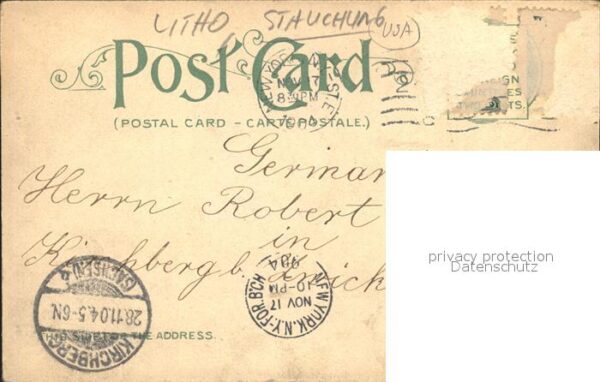 LITHO STAUCHUNG
USA
Post Card
(POSTAL CARD – CARTE POSTALE.)
NEW YORK, N.Y. STA
NOV 17
8 PM
Germa
Herrn Robert
in
Kirchberg b. Zwick
privacy protection
Datenschutz
NEW YORK, N.Y. FOR. B'CH
NOV 17
10-PM
904
KIRCHBERG (SACHSEN)
28.11.04.5-6N.
THE ADDRESS.